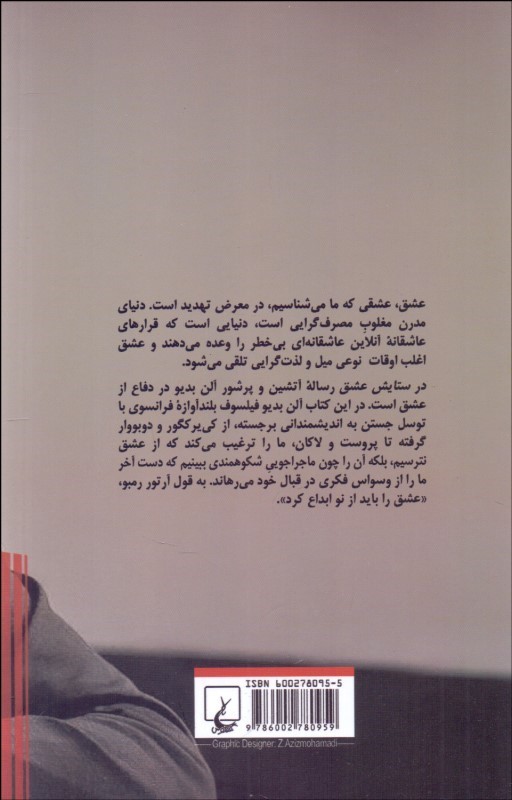 عشق، عشقی که ما می‌شناسیم، در معرض تهدید است. دنیای
مدرن مغلوبِ مصرف‌گرایی است، دنیایی است که قرارهای
عاشقانهٔ آنلاین عاشقانه‌ای بی‌خطر را وعده می‌دهند و عشق
اغلب اوقات نوعی میل و لذت‌گرایی تلقی می‌شود.
در ستایش عشق رسالهٔ آتشین و پرشور آلن بدیو در دفاع از
عشق است. در این کتاب آلن بدیو فیلسوف بلندآوازهٔ فرانسوی با
توسل جستن به اندیشمندانی برجسته، از کی‌یرکگور و دوبووار
گرفته تا پروست و لاکان، ما را ترغیب می‌کند که از عشق
نترسیم، بلکه آن را چون ماجراجویی شکوهمندی ببینیم که دست آخر
ما را از وسواس فکری در قبال خود می‌رهاند. به قول آرتور رمبو،
«عشق را باید از نو ابداع کرد».
ISBN 600278095-5
9 786002 780959
Graphic Designer: Z.Azizmohamadi